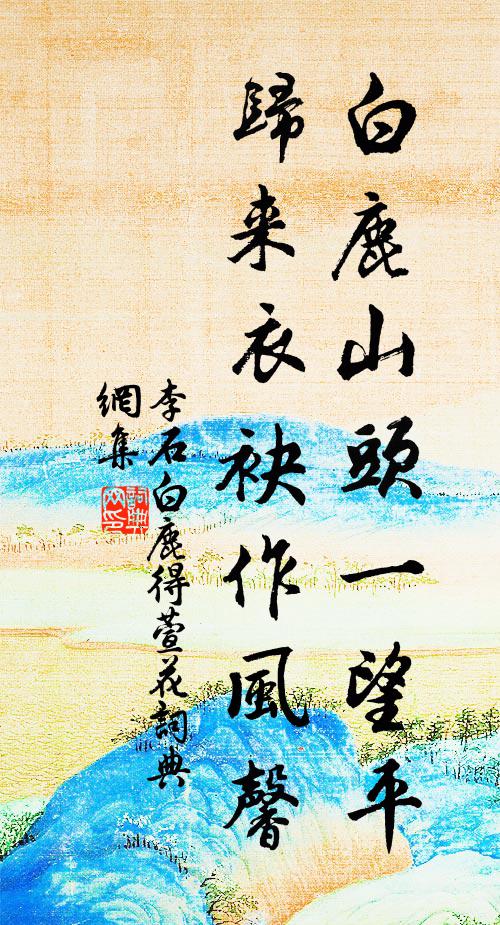 白鹿山頭一望平
歸来衣袂作風馨
李石白鹿得萱花詞典
網集
詞典
网印